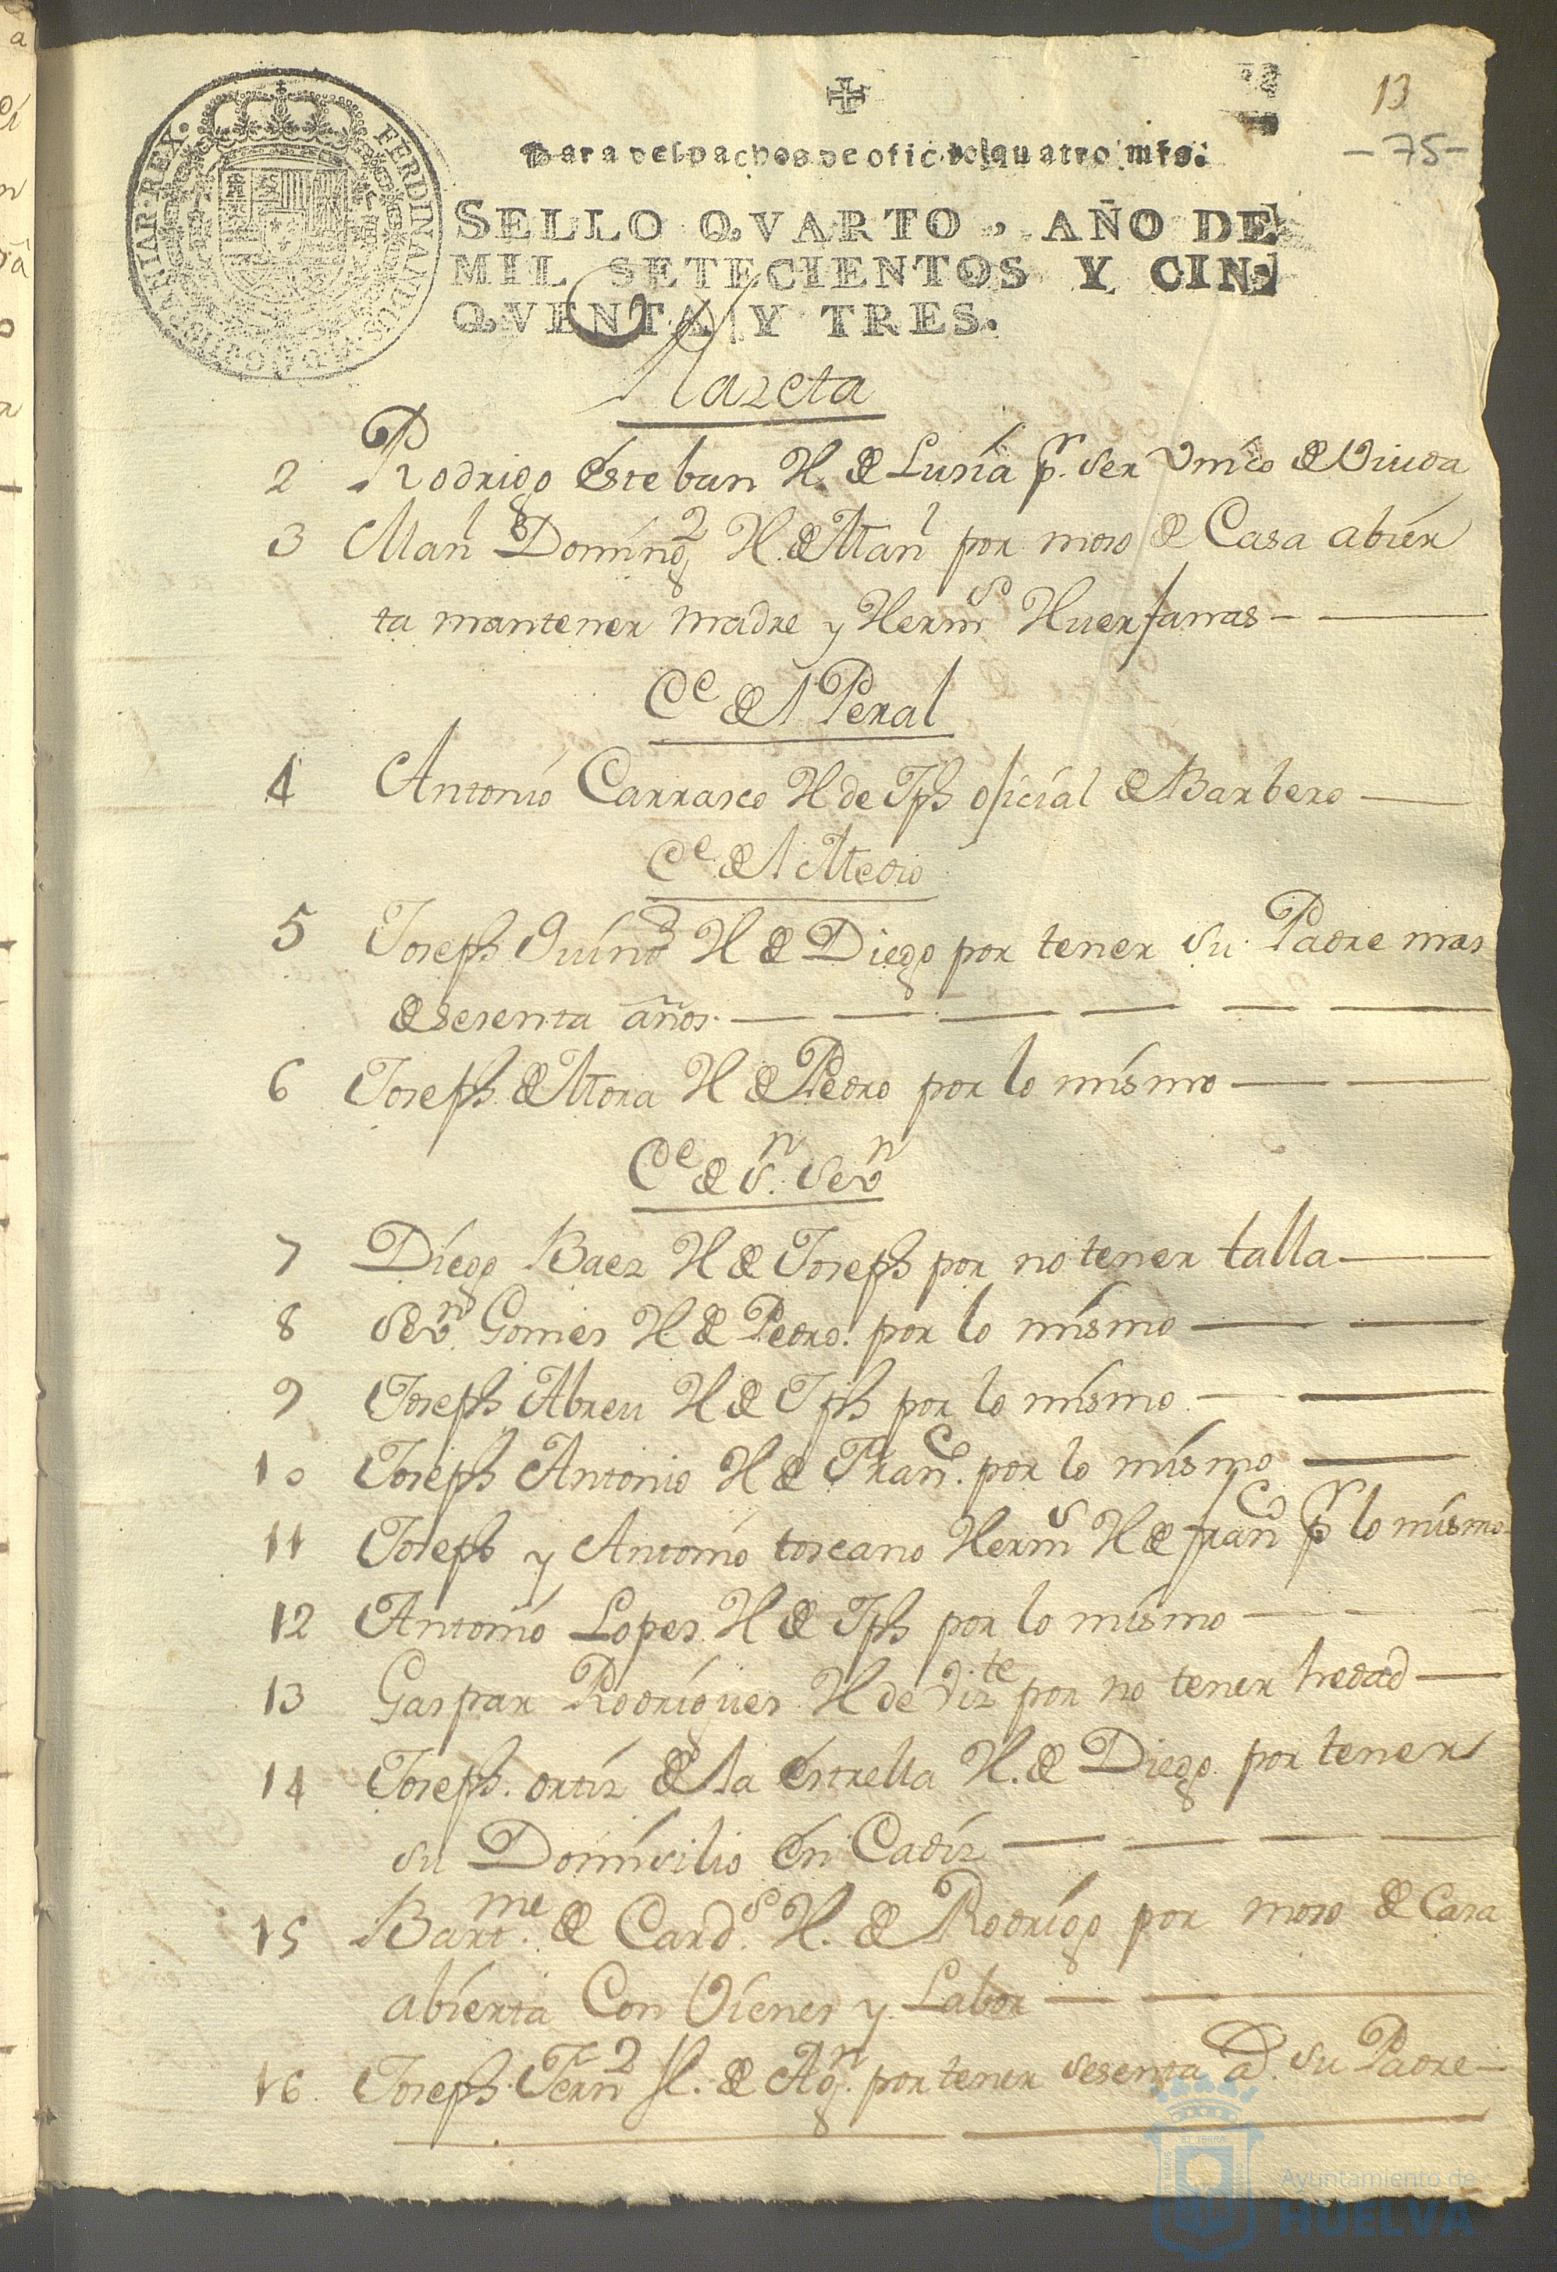 13
-75-
Para despachos de oficio quatro mrs.
SELLO QVARTO, AÑO DE
MIL SETECIENTOS Y CIN-
QVENTA Y TRES.
FERDINANDUS
HISPANIAR·REX·
Plazeta
2 Rodrigo esteban H. de Lucia pr. ser Vnico de Viuda
3 Manl Domingz H. de Manl por moso de Casa abier
ta mantener madre y Hermas Huerfanas
Ce del Peral
4 Antonio Carrasco H de Jph oficial de Barbero
Ce del Medio
5 Joseph H de Diego por tener su Padre mas
de sesenta años
6 Joseph de Mora H de Pedro por lo mismo
Ce de Sn. Sevn
7 Diego Baez H de Joseph por no tener talla
8 Sevn Gomes H de Pedro. por lo mismo
9 Joseph Abreu H de Jph por lo mismo
10 Joseph Antonio H de Franco. por lo mismo
11 Joseph y Antonio toscano Herms H de franco pr lo mismo
12 Antonio Lopes H de Jph por lo mismo
13 Gaspar Rodrigues H de Vizte por no tener hedad
14 Joseph. ortiz de la estrella H. de Diego por tener
su Domisilio en Cadiz
15 Bartme. de Cards. H. de Rodrigo por moso de Casa
abierta Con Vienes y Labor
16 Joseph Fernz H. de Agn. por tener sesenta a. su Padre
Ayuntamiento de
HUELVA